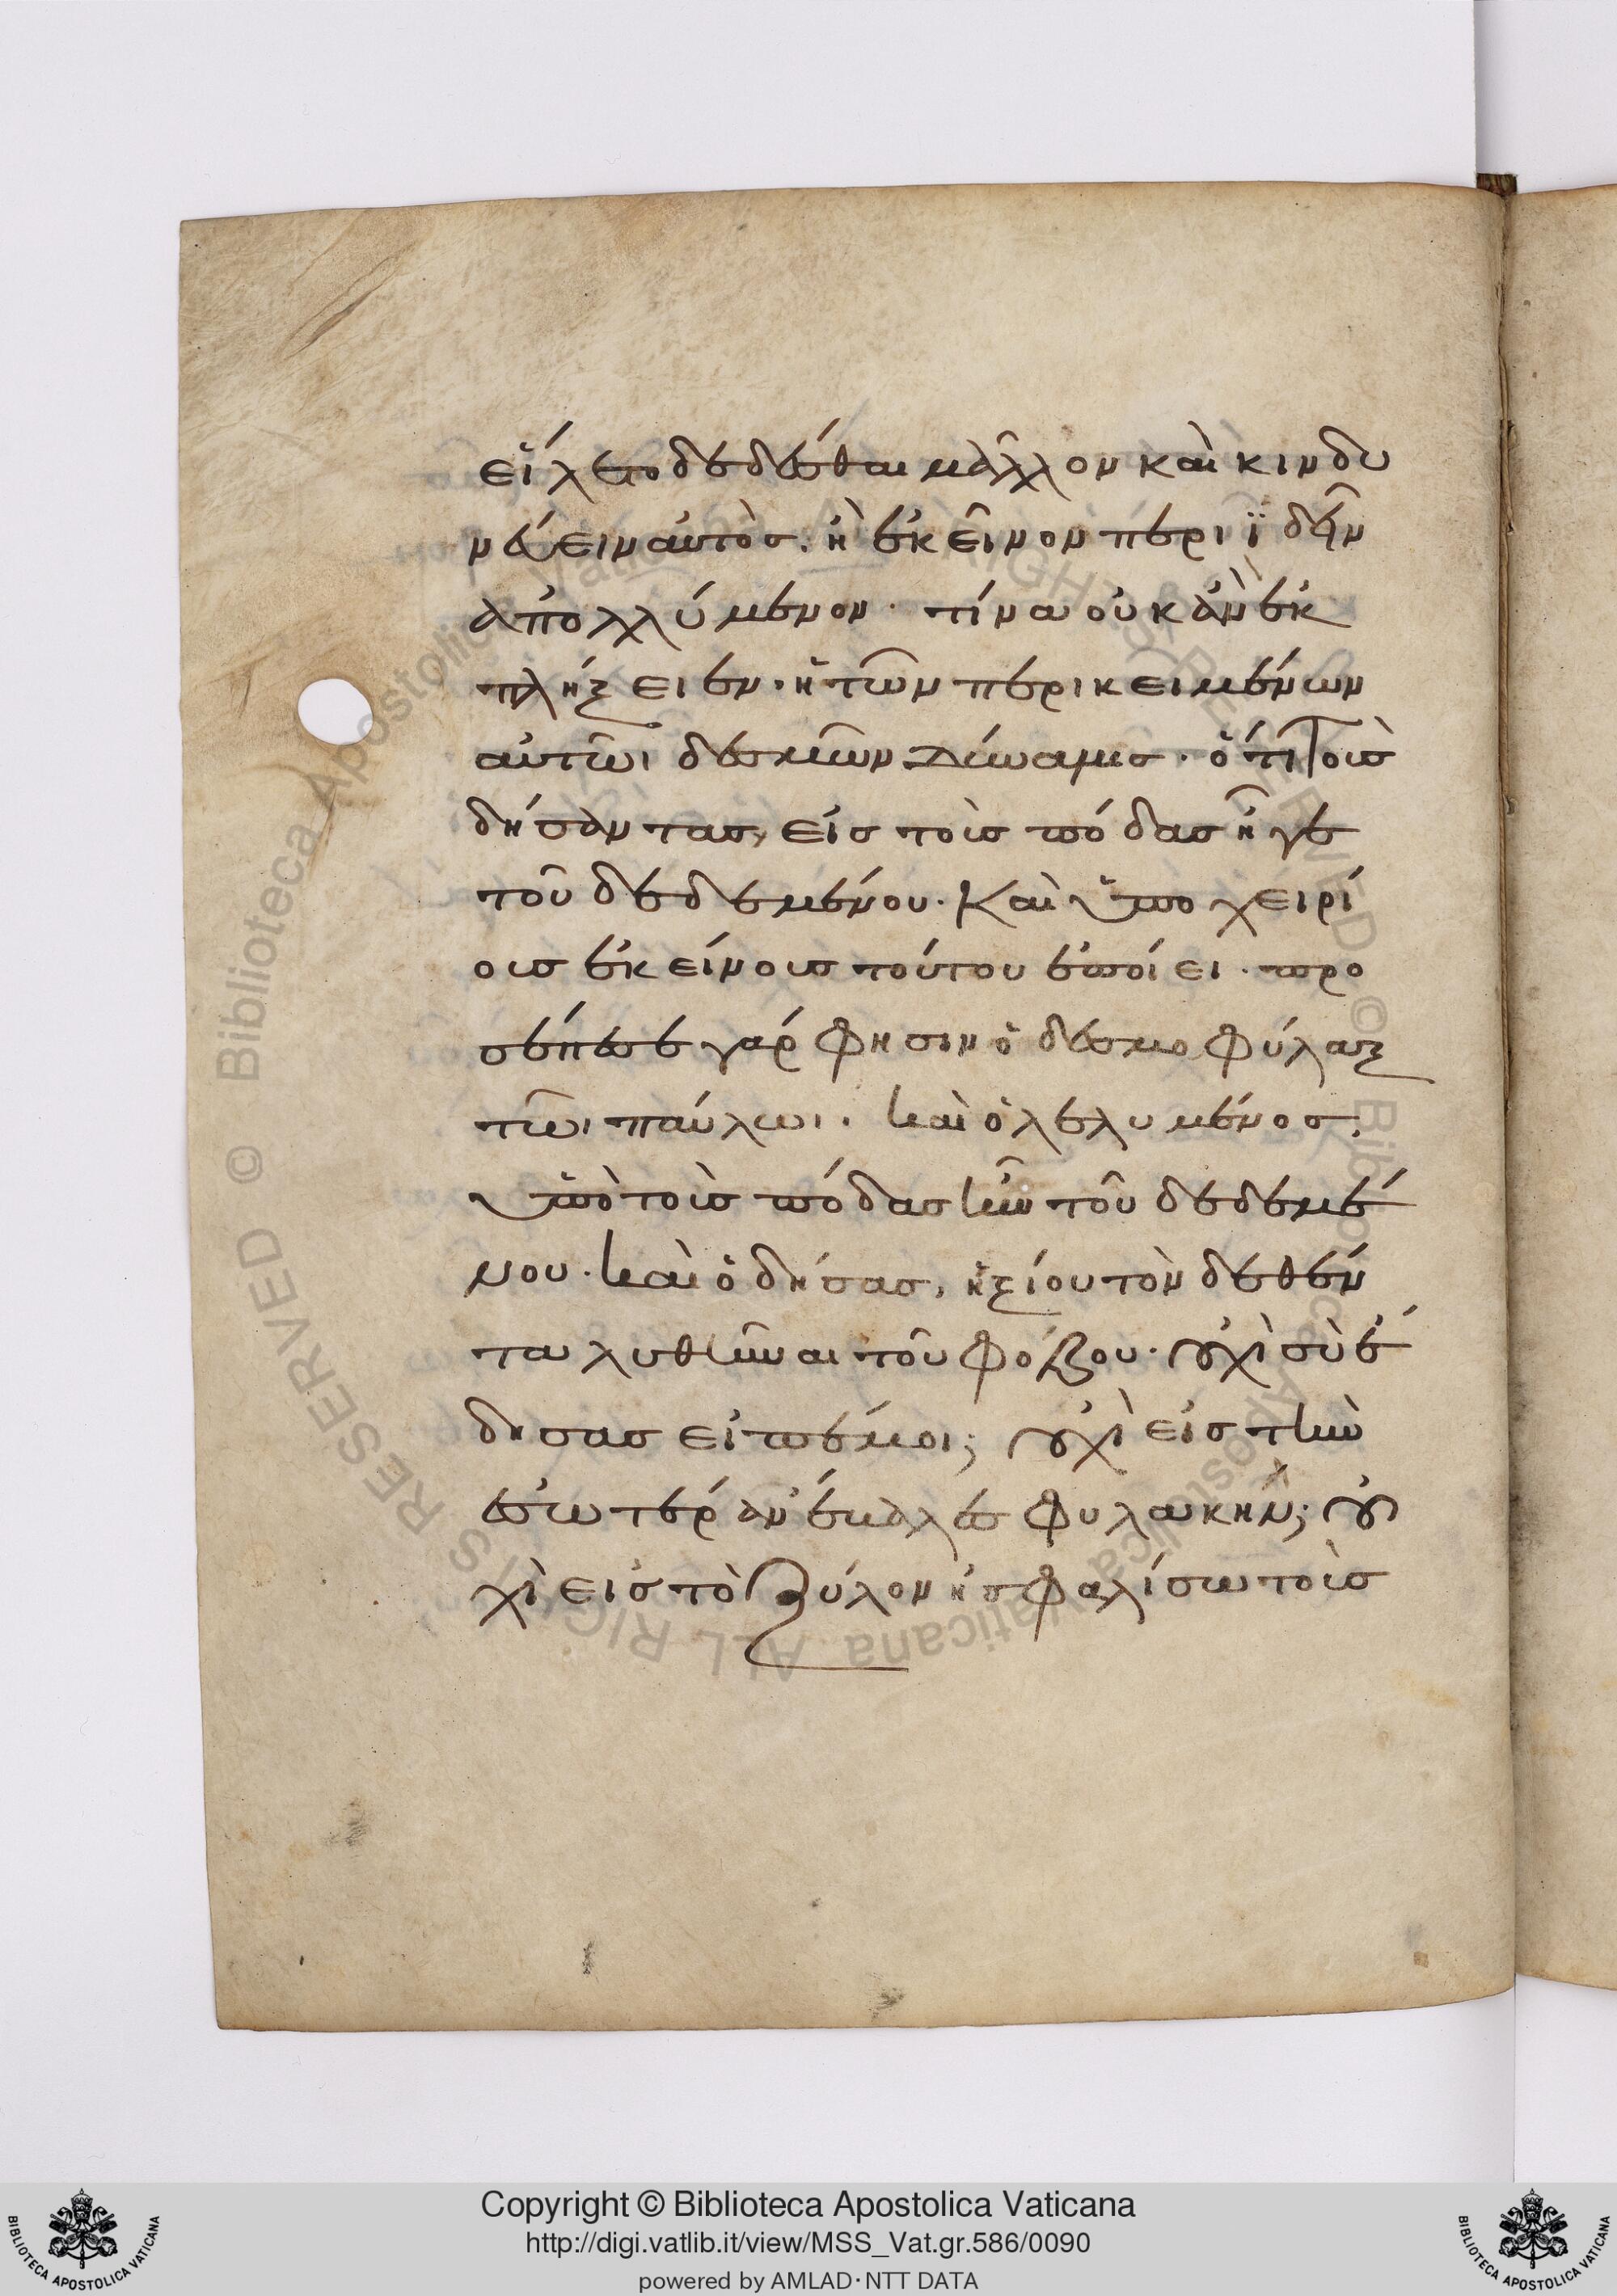 εἵλετο δεδέσθαι μᾶλλον καὶ κινδυ
νεύειν αὐτὸς. ἢ ἐκεῖνον περιϊδεῖν
ἀπολλύμενον· τίνα οὐκ ἂν ἐκ
πλήξειεν. ἡ τῶν περικειμένων
αὐτῶι δεσμῶν δύναμις· ὅτι τοὺς
δήσαντας, εἰς τοὺς πόδας ἦγε
τοῦ δεδεμένου. καὶ ὑποχειρί
ους ἐκείνους τούτου ἐποίει. προ
σέπεσε γάρ φησιν ὁ δεσμοφύλαξ
τῶι παύλωι. καὶ ὁ λελυμένος,
ὑπὸ τοὺς πόδας ἦν τοῦ δεδεμέ
νου. καὶ ὁ δήσας, ἠξίου τὸν δεθέν
τα λυθῆναι τοῦ φόβου. οὐχὶ σὺ ἔ
δησας εἰπέ μοι; οὐχὶ εἰς τὴν
ἐσωτέραν ἔβαλες φυλακήν; οὐ
χὶ εἰς τὸ ξύλον ἠσφαλίσω τοὺς
Copyright © Biblioteca Apostolica Vaticana
http://digi.vatlib.it/view/MSS_Vat.gr.586/0090
powered by AMLAD·NTT DATA
BIBLIOTECA APOSTOLICA VATICANA
BIBLIOTECA APOSTOLICA VATICANA
© Biblioteca Apostolica Vaticana ALL RIGHTS RESERVED © Biblioteca Apostolica Vaticana ALL RIGHTS RESERVED